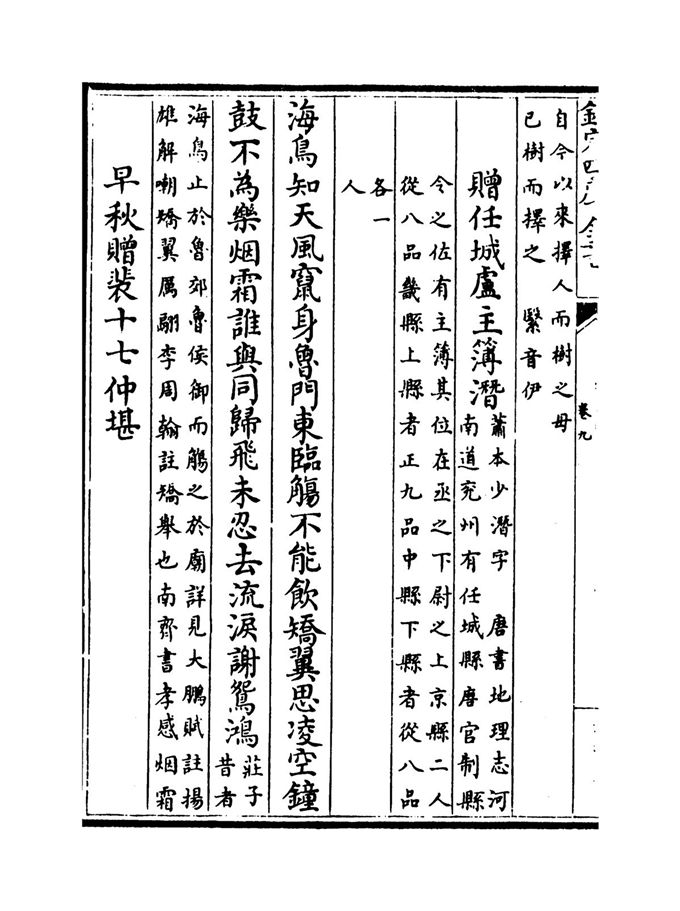 卷九
自今以來擇人而樹之毋
已樹而擇之　繄音伊
贈任城盧主簿潛
蕭本少潛字　唐書地理志河
南道兖州有任城縣唐官制縣
令之佐有主簿其位在丞之下尉之上京縣二人
從八品畿縣上縣者正九品中縣下縣者從八品
各一
人
海鳥知天風竄身魯門東臨觴不能飲矯翼思凌空鐘
鼓不為樂烟霜誰與同歸飛未忍去流淚謝鴛鴻
莊子
昔者
海鳥止於魯郊魯侯御而觴之於廟詳見大鵬賦註揚
雄解嘲矯翼厲翮李周翰註矯舉也南齊書孝感烟霜
早秋贈裴十七仲堪